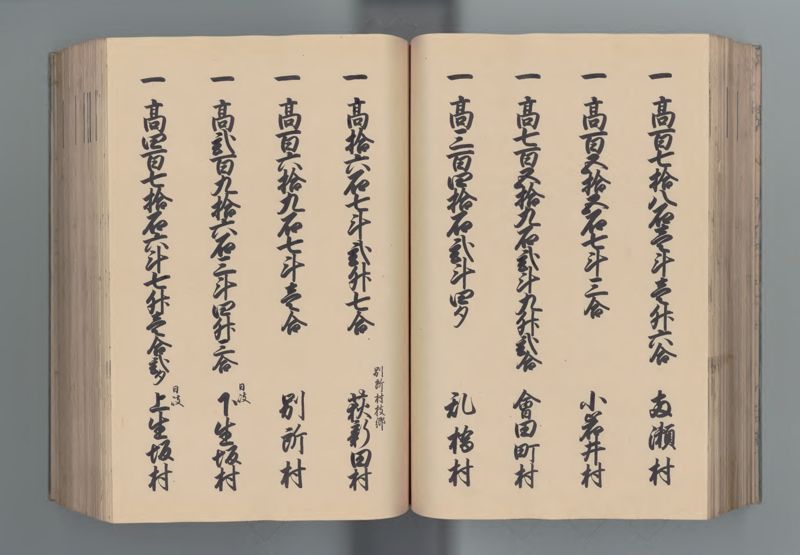 一 高百七拾八石壱斗壱升六合 両瀬村
一 高百五拾五石七斗三合 小岩井村
一 高七百五拾九石弐斗九升弐合 會田町村
一 高三百四拾石弐斗四夕 乱橋村
別所村枝郷
一 高拾六石七斗弐升七合 萩新田村
一 高百六拾九石七斗壱合 別所村
一 高弐百九拾六石三斗四升二合 日岐 下生坂村
一 高四百七拾石六斗七升壱合弐夕 日岐 上生坂村